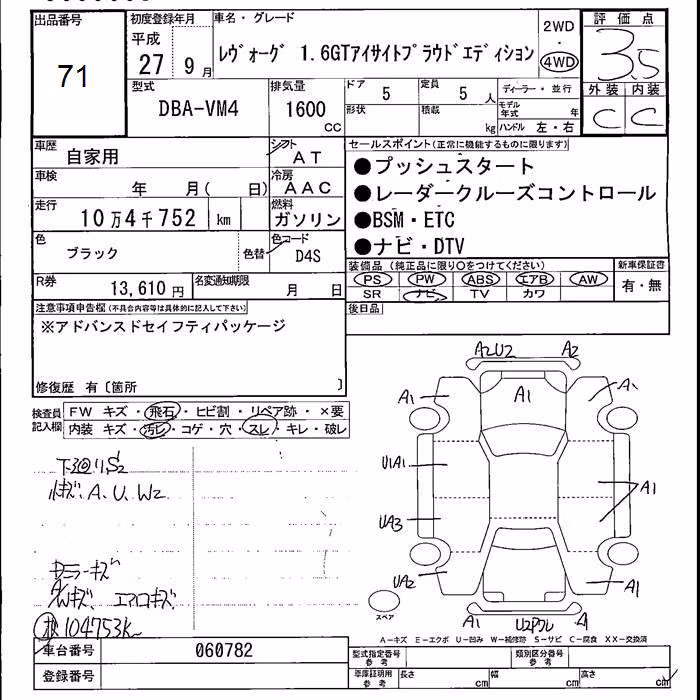 出品番号
71
初度登録年月
平成
27年 9月
車名・グレード
レヴォーグ 1.6GTアイサイトプラウドエディション
2WD
・
4WD
評価点
3.5
外装 内装
C C
型式
DBA-VM4
排気量
1600
CC
ドア
5
定員
5 人
形状
積載
kg
ディーラー・並行
モデル年式 年
ハンドル 左・右
車歴
自家用
シフト
AT
車検
年 月( 日)
冷房
AAC
走行
10万4千752 km
燃料
ガソリン
色
ブラック
色替
色コード
D4S
R券
13,610円
名変通知期限
月 日
セールスポイント(正常に機能するものに限ります)
●プッシュスタート
●レーダークルーズコントロール
●BSM・ETC
●ナビ・DTV
装備品(純正品に限り○をつけてください)
PS PW ABS エアB AW
SR ナビ TV カワ
新車保証書
有・無
後日品
注意事項申告欄(不具合内容等は具体的に記入して下さい)
※アドバンスドセイフティパッケージ
修復歴 有〔箇所 〕
検査員
記入欄
FW キズ・飛石・ヒビ割・リペア跡・×要
内装 キズ・汚レ・コゲ・穴・スレ・キレ・破レ
下廻り、S2
小キズ A、U、W2
ミラーキズ
A/Wキズ、エアロキズ
検 104753K
A2U2 A2
A1 A1 A1
U1A1
A1
UA3
UA2 A1
A1 U2ワレ A1
スペア
A-キズ E-エクボ U-凹み W-補修跡 S-サビ C-腐食 XX-交換済
車台番号
060782
登録番号
型式指定番号
参考
類別区分番号
参考
車庫証明用
参考
長さ cm
幅 cm
高さ cm